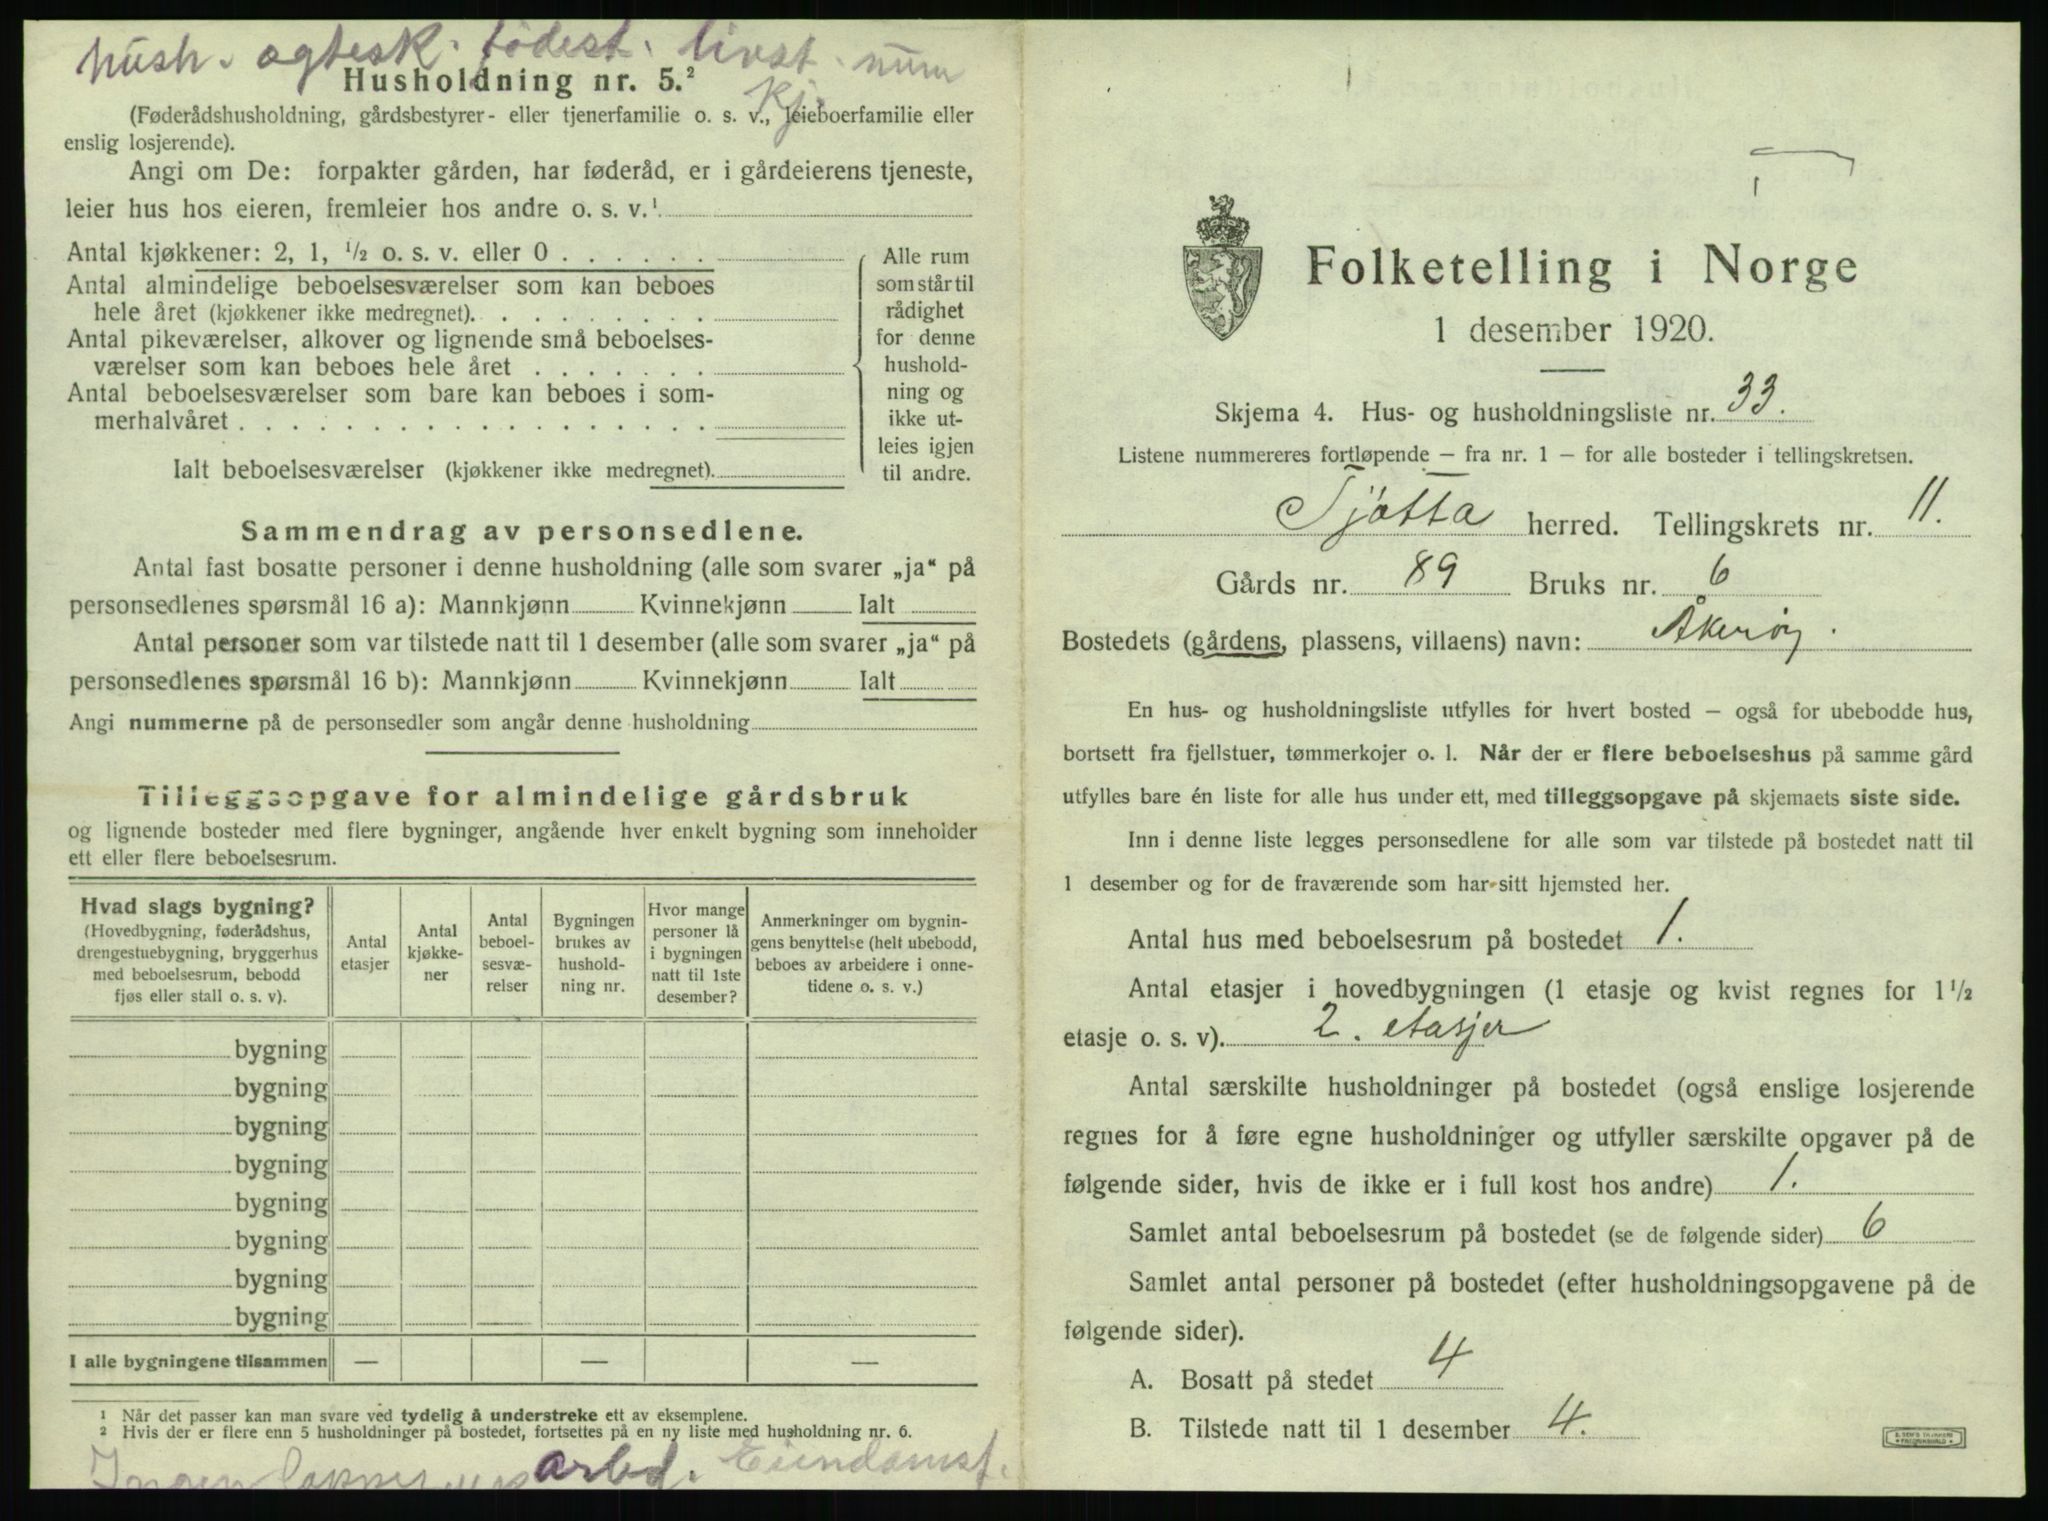 hush. ogtesk. fødest. livst. num
Kj.
Husholdning nr. 5.²
(Føderådshusholdning, gårdsbestyrer- eller tjenerfamilie o. s. v., leieboerfamilie eller
enslig losjerende).
Angi om De: forpakter gården, har føderåd, er i gårdeierens tjeneste,
leier hus hos eieren, fremleier hos andre o. s. v.¹
Antal kjøkkener: 2, 1, ½ o. s. v. eller 0 . . . . . .
Antal almindelige beboelsesværelser som kan beboes
hele året (kjøkkener ikke medregnet). . . . . . . . .
Antal pikeværelser, alkover og lignende små beboelses-
værelser som kan beboes hele året . . . . . . .
Antal beboelsesværelser som bare kan beboes i som-
merhalvåret . . . . . . . . . . . . . . . . . .
Ialt beboelsesværelser (kjøkkener ikke medregnet).
Alle rum
som står til
rådighet
for denne
hushold-
ning og
ikke ut-
leies igjen
til andre.
Sammendrag av personsedlene.
Antal fast bosatte personer i denne husholdning (alle som svarer „ja“ på
personsedlenes spørsmål 16 a): Mannkjønn Kvinnekjønn Ialt
Antal personer som var tilstede natt til 1 desember (alle som svarer „ja“ på
personsedlenes spørsmål 16 b): Mannkjønn Kvinnekjønn Ialt
Angi nummerne på de personsedler som angår denne husholdning
Tilleggsopgave for almindelige gårdsbruk
og lignende bosteder med flere bygninger, angående hver enkelt bygning som inneholder
ett eller flere beboelsesrum.
Hvad slags bygning?
(Hovedbygning, føderådshus,
drengestuebygning, bryggerhus
med beboelsesrum, bebodd
fjøs eller stall o. s. v).
Antal
etasjer
Antal
kjøkke-
ner
Antal
beboel-
sesvæ-
relser
Bygningen
brukes av
hushold-
ning nr.
Hvor mange
personer lå
i bygningen
natt til 1ste
desember?
Anmerkninger om bygnin-
gens benyttelse (helt ubebodd,
beboes av arbeidere i onne-
tidene o. s. v.)
bygning
bygning
bygning
bygning
bygning
bygning
bygning
bygning
I alle bygningene tilsammen — — —
¹ Når det passer kan man svare ved tydelig å understreke ett av eksemplene.
² Hvis der er flere enn 5 husholdninger på bostedet, fortsettes på en ny liste med husholdning nr. 6.
Ingen arbd. Eiendomsf.
Folketelling i Norge
1 desember 1920.
Skjema 4. Hus- og husholdningsliste nr. 33.
Listene nummereres fortløpende — fra nr. 1 — for alle bosteder i tellingskretsen.
Tjøtta herred. Tellingskrets nr. 11.
Gårds nr. 89 Bruks nr. 6
Bostedets (gårdens, plassens, villaens) navn: Åkerøy.
En hus- og husholdningsliste utfylles for hvert bosted — også for ubebodde hus,
bortsett fra fjellstuer, tømmerkojer o. l. Når der er flere beboelseshus på samme gård
utfylles bare én liste for alle hus under ett, med tilleggsopgave på skjemaets siste side.
Inn i denne liste legges personsedlene for alle som var tilstede på bostedet natt til
1 desember og for de fraværende som har sitt hjemsted her.
Antal hus med beboelsesrum på bostedet 1.
Antal etasjer i hovedbygningen (1 etasje og kvist regnes for 1½
etasje o. s. v). 2. etasjer
Antal særskilte husholdninger på bostedet (også enslige losjerende
regnes for å føre egne husholdninger og utfyller særskilte opgaver på de
følgende sider, hvis de ikke er i full kost hos andre) 1.
Samlet antal beboelsesrum på bostedet (se de følgende sider) 6
Samlet antal personer på bostedet (efter husholdningsopgavene på de
følgende sider).
A. Bosatt på stedet 4
B. Tilstede natt til 1 desember 4.